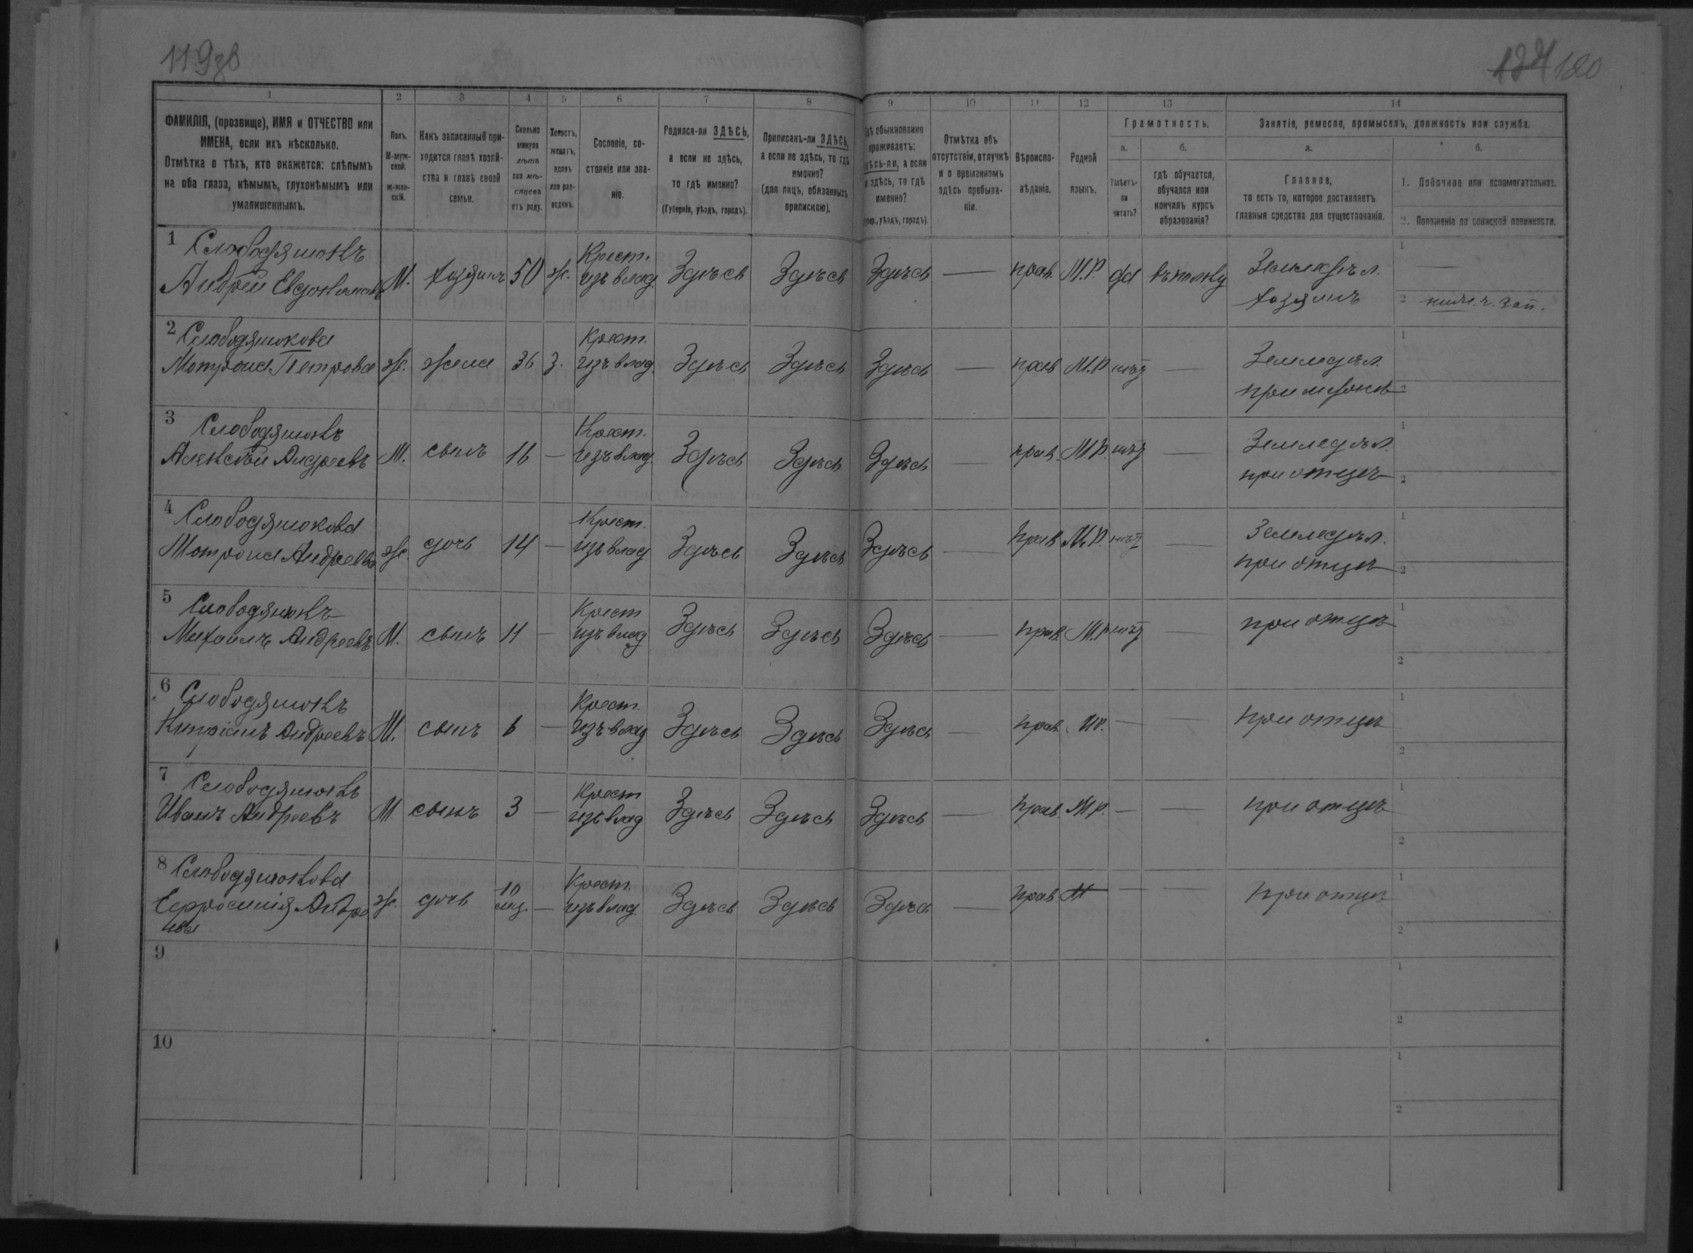 119 об
124 120
1 2 3 4 5 6 7 8 9 10 11 12 13 14
ФАМИЛІЯ, (прозвище), ИМЯ и ОТЧЕСТВО или ИМЕНА, если ихъ нѣсколько.
Отмѣтка о тѣхъ, кто окажется: слѣпымъ на оба глаза, нѣмымъ, глухонѣмымъ или умалишеннымъ.
Полъ.
М-мужской.
Ж-женскій.
Какъ записанный приходится главѣ хозяйства и главѣ своей семьи.
Сколько минуло лѣтъ или мѣсяцевъ отъ роду.
Холостъ, женатъ, вдовъ или разведенъ.
Сословіе, состояніе или званіе.
Родился-ли ЗДѢСЬ, а если не здѣсь, то гдѣ именно?
(Губернія, уѣздъ, городъ).
Приписанъ-ли ЗДѢСЬ, а если не здѣсь, то гдѣ именно?
(для лицъ, обязанныхъ припискою).
Гдѣ обыкновенно проживаетъ: здѣсь-ли, а если не здѣсь, то гдѣ именно?
(Губер., уѣздъ, городъ).
Отмѣтка объ отсутствіи, отлучкѣ и о временномъ здѣсь пребываніи.
Вѣроисповѣданіе.
Родной языкъ.
Грамотность.
а. Умѣетъ-ли читать?
б. гдѣ обучается, обучался или кончилъ курсъ образованія?
Занятіе, ремесло, промыселъ, должность или служба.
а. Главное,
то есть то, которое доставляетъ главныя средства для существованія.
б.
1. Побочное или вспомогательное.
2. Положеніе по воинской повинности.
1 Слободянюкъ
Андрей Евдокимовъ М. хозяинъ 50 ж. Крест. изъ влад. Здѣсь Здѣсь Здѣсь — прав. М.Р. да Земледѣл. хозяинъ 1 — 2
2 Слободянюкова
Мотрона Петрова ж. жена 36 з. Крест. изъ влад. Здѣсь Здѣсь Здѣсь — прав. М.Р. нѣтъ — Земледѣл. при мужѣ 1 2
3 Слободянюкъ
Алексѣй Андреевъ М. сынъ 16 — Крест. изъ влад. Здѣсь Здѣсь Здѣсь — прав. М.Р. нѣтъ — Земледѣл. при отцѣ 1 2
4 Слободянюкова
Мотрона Андреева ж. дочь 14 — Крест. изъ влад. Здѣсь Здѣсь Здѣсь — прав. М.Р. нѣтъ — Земледѣл. при отцѣ 1 2
5 Слободянюкъ
Михаилъ Андреевъ М. сынъ 11 — Крест. изъ влад Здѣсь Здѣсь Здѣсь — прав. М.Р. нѣтъ — при отцѣ 1 2
6 Слободянюкъ
Андреевъ М. сынъ 6 — Крест. изъ влад Здѣсь Здѣсь Здѣсь — прав. М.Р. — — при отцѣ 1 2
7 Слободянюкъ
Иванъ Андреевъ М сынъ 3 — Крест. изъ влад Здѣсь Здѣсь Здѣсь — прав. М.Р. — — при отцѣ 1 2
8 Слободянюкова
Ефросинія Андре ж. дочь 10 мц. — Крест. изъ влад. Здѣсь Здѣсь Здѣсь — прав. М — — при отцѣ 1 2
9 1 2
10 1 2